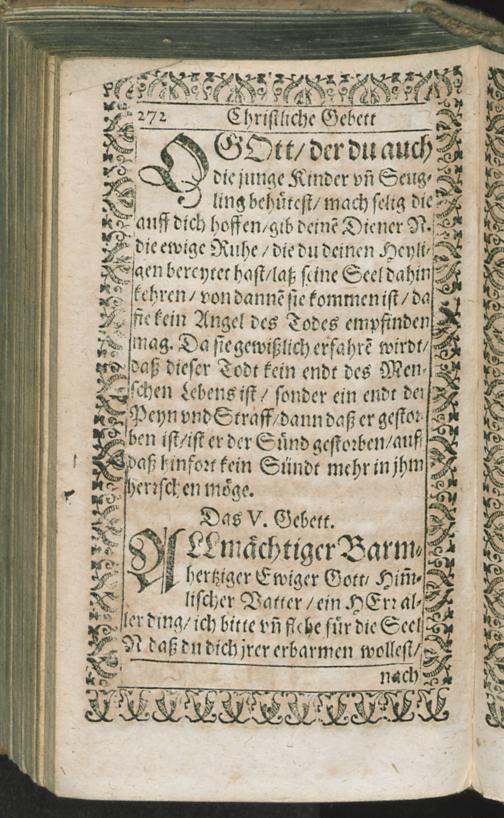 272 Christliche Gebett
O GOtt/ der du auch
die junge Kinder vñ Seug-
ling behütest/ mach selig die
auff dich hoffen/ gib deinẽ Diener N.
die ewige Ruhe / die du deinen Heyli-
gen bereytet hast/ laß seine Seel dahin
kehren / von dannẽ sie kommen ist / da
sie kein Angel des Todes empfinden
mag. Da sie gewißlich erfahrẽ wirdt/
daß dieser Todt kein endt des Men-
schen Lebens ist / sonder ein endt der
Peyn vnd Straff/ dann daß er gestor-
ben ist/ ist er der Sünd gestorben/ auff
daß hinfort kein Sündt mehr in jhm
herrschen möge.
Das V. Gebett.
ALLmächtiger Barm-
hertziger Ewiger Gott/ Him̃-
lischer Vatter / ein HErr al-
ler ding/ ich bitte vñ flehe für die Seel
N daß du dich jrer erbarmen wollest/
nach